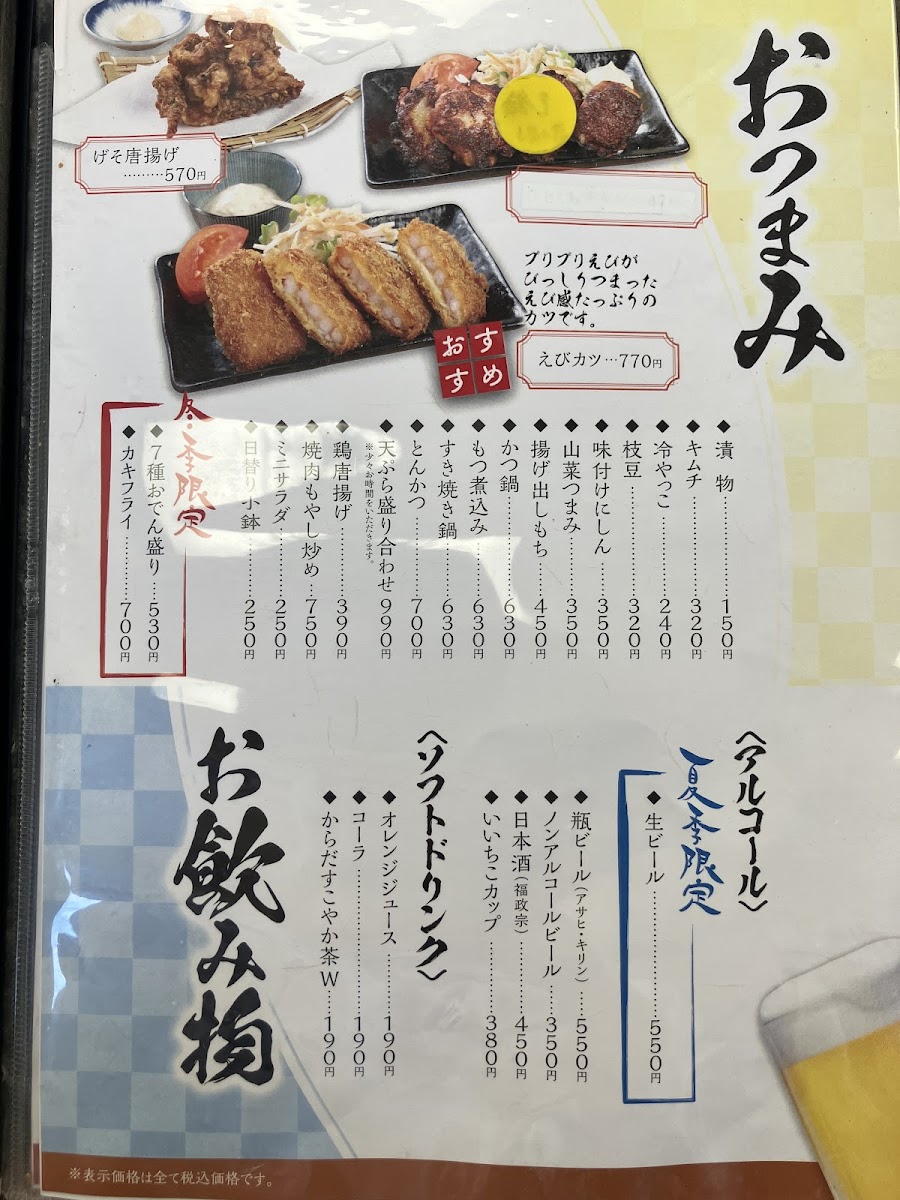 おつまみ
げそ唐揚げ
………570円
プリプリえびが
びっしりつまった
えび感たっぷりの
カツです。
えびカツ…770円
おすすめ
◆漬物………150円
◆キムチ………320円
◆冷やっこ………240円
◆枝豆………320円
◆味付けにしん………350円
◆山菜つまみ………350円
◆揚げ出しもち………450円
◆かつ鍋………630円
◆もつ煮込み………630円
◆すき焼き鍋………630円
◆とんかつ………700円
◆天ぷら盛り合わせ 990円
※少々お時間をいただきます。
◆鶏唐揚げ………390円
◆焼肉もやし炒め…750円
◆ミニサラダ………250円
◆日替り小鉢………250円
冬季限定
◆7種おでん盛り…530円
◆カキフライ………700円
お飲み物
〈アルコール〉
夏季限定
◆生ビール………550円
◆瓶ビール(アサヒ・キリン)…550円
◆ノンアルコールビール…350円
◆日本酒(福政宗)………450円
◆いいちこカップ………380円
〈ソフトドリンク〉
◆オレンジジュース…190円
◆コーラ………190円
◆からだすこやか茶W…190円
※表示価格は全て税込価格です。